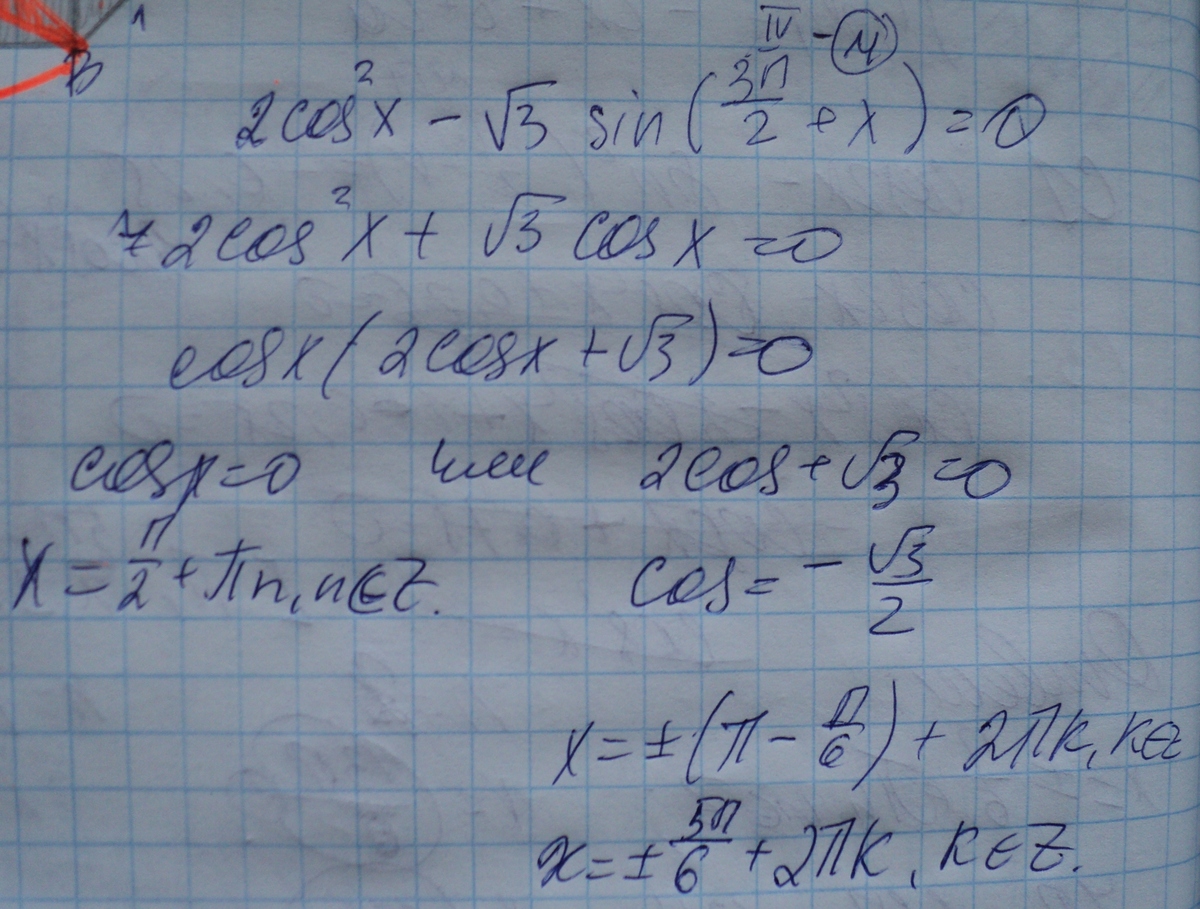 1
B
IV - (4)
2cos²x - √3 sin(3π/2 + x) = 0
2cos²x + √3 cosx = 0
cosx(2cosx + √3) = 0
cosx = 0 или 2cos + √3 = 0
x = π/2 + πn, n ∈ Z. cos = - √3/2
x = ±(π - π/6) + 2πk, k ∈ Z
x = ± 5π/6 + 2πk, k ∈ Z.